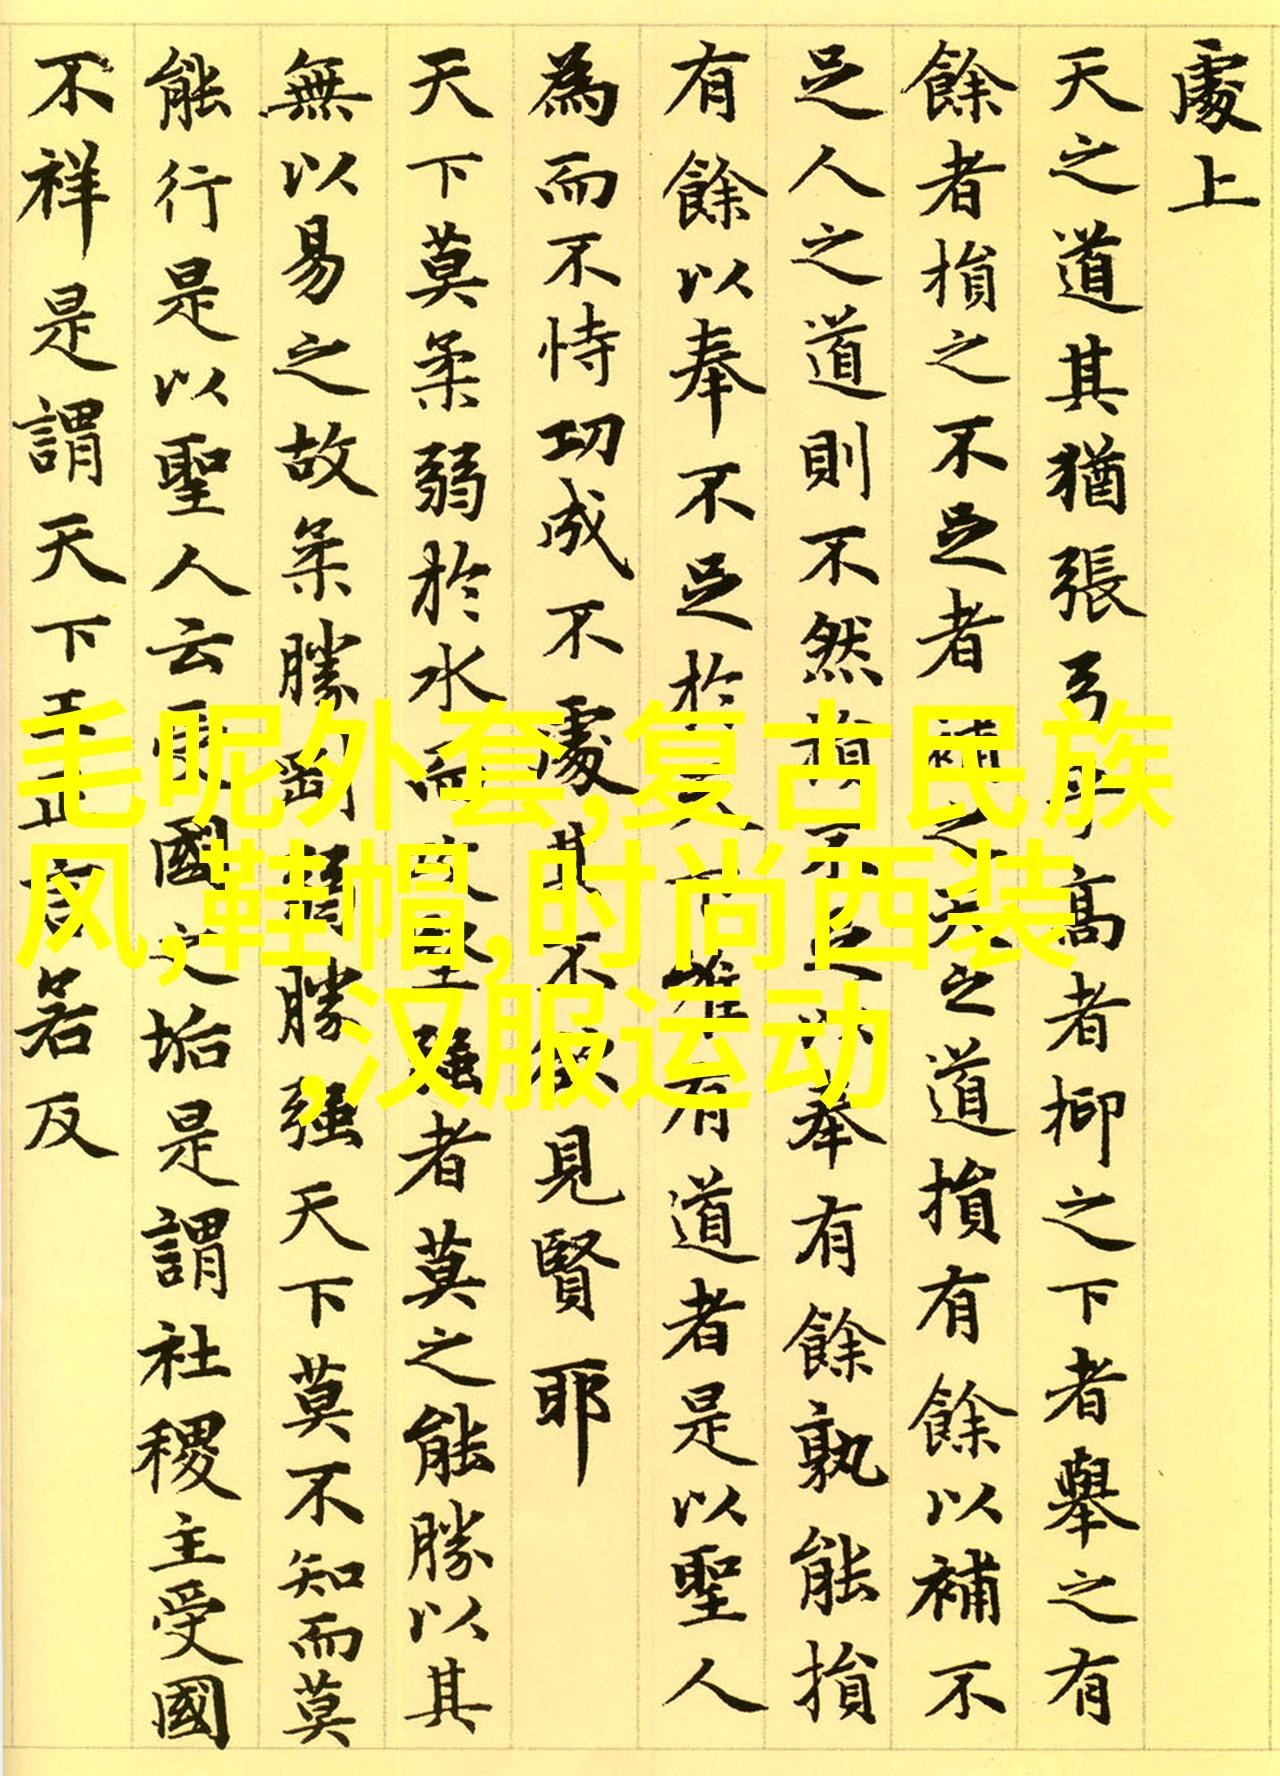 處上
天之道其猶張弓乎高者抑之下者舉之有
餘者損之不足者補之天之道損有餘以補不
足人之道則不然損不足以奉有餘孰能損
有餘以奉不足於天下唯有道者是以聖人
為而不恃功成不處其不欲見賢耶
天下莫柔弱於水而攻堅强者莫之能勝以其
無以易之故柔勝剛弱勝强天下莫不知而莫
能行是以聖人云受國之垢是謂社稷主受國
不祥是謂天下王正言若反
毛呢外套,复古民族
风,鞋帽,时尚西装
,汉服运动